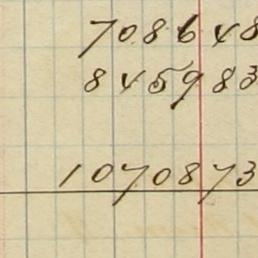 708648
845983
1070873